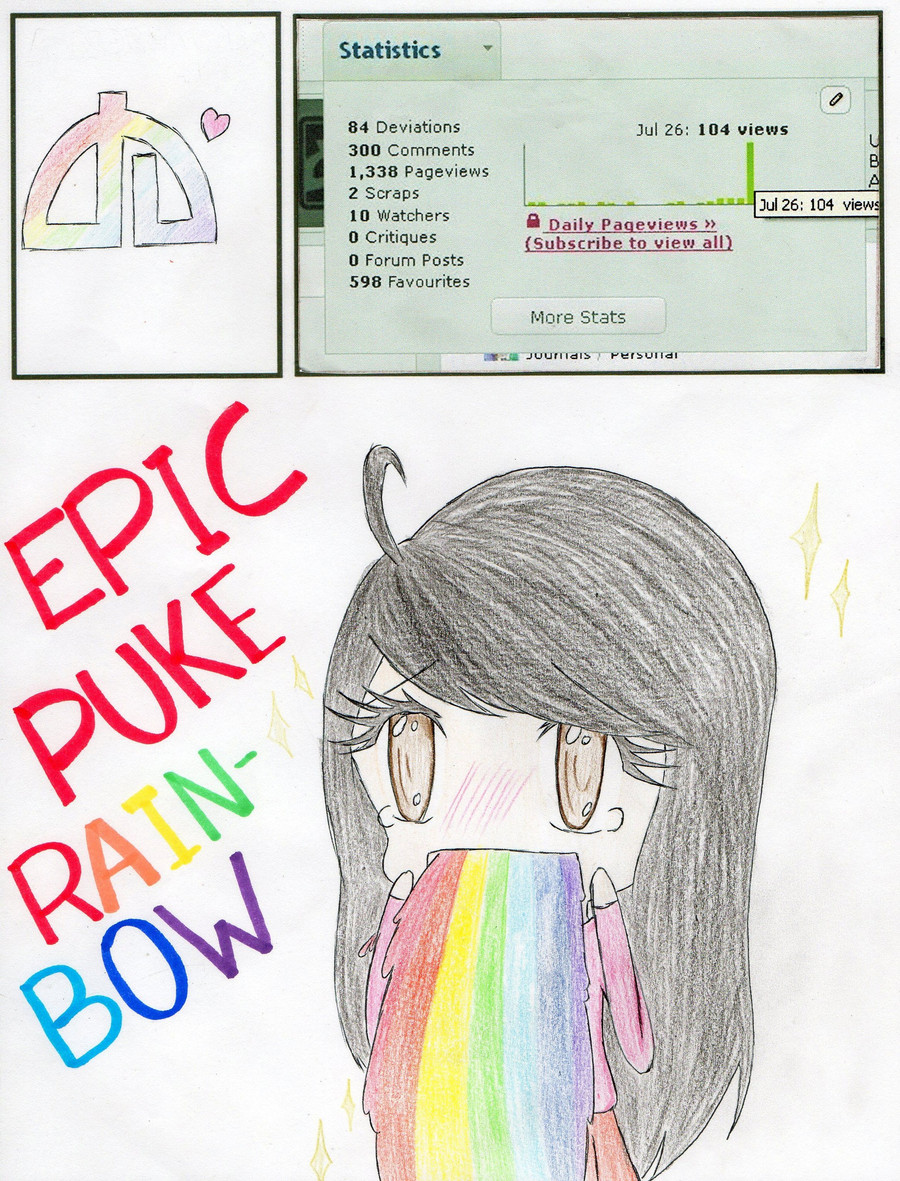 Statistics
84 Deviations
300 Comments
1,338 Pageviews
2 Scraps
10 Watchers
0 Critiques
0 Forum Posts
598 Favourites
Jul 26: 104 views
Jul 26: 104 views
Daily Pageviews »
(Subscribe to view all)
More Stats
Journals / Personal
U
B
A
EPIC
PUKE
RAIN-
BOW